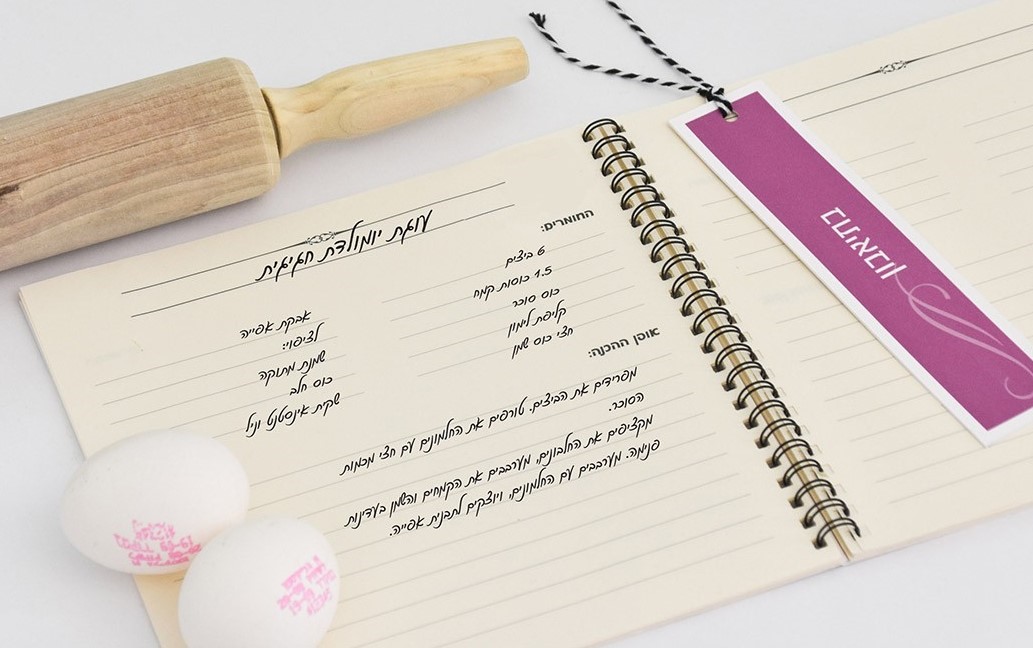 עוגת יומולדת חגיגית
החומרים:
6 ביצים
1.5 כוסות קמח
כוס סוכר
קליפת לימון
חצי כוס שמן
אבקת אפייה
לציפוי:
שמנת מתוקה
כוס חלב
שקית אינסטנט וניל
אופן ההכנה:
מפרידים את הביצים. טורפים את החלמונים עם חצי מכמות
הסוכר.
מקציפים את החלבונים, מערבבים את הקמחים והשמן בעדינות
פנימה. מערבבים עם החלמונים, ויוצקים לתבנית אפייה.
בתיאבון